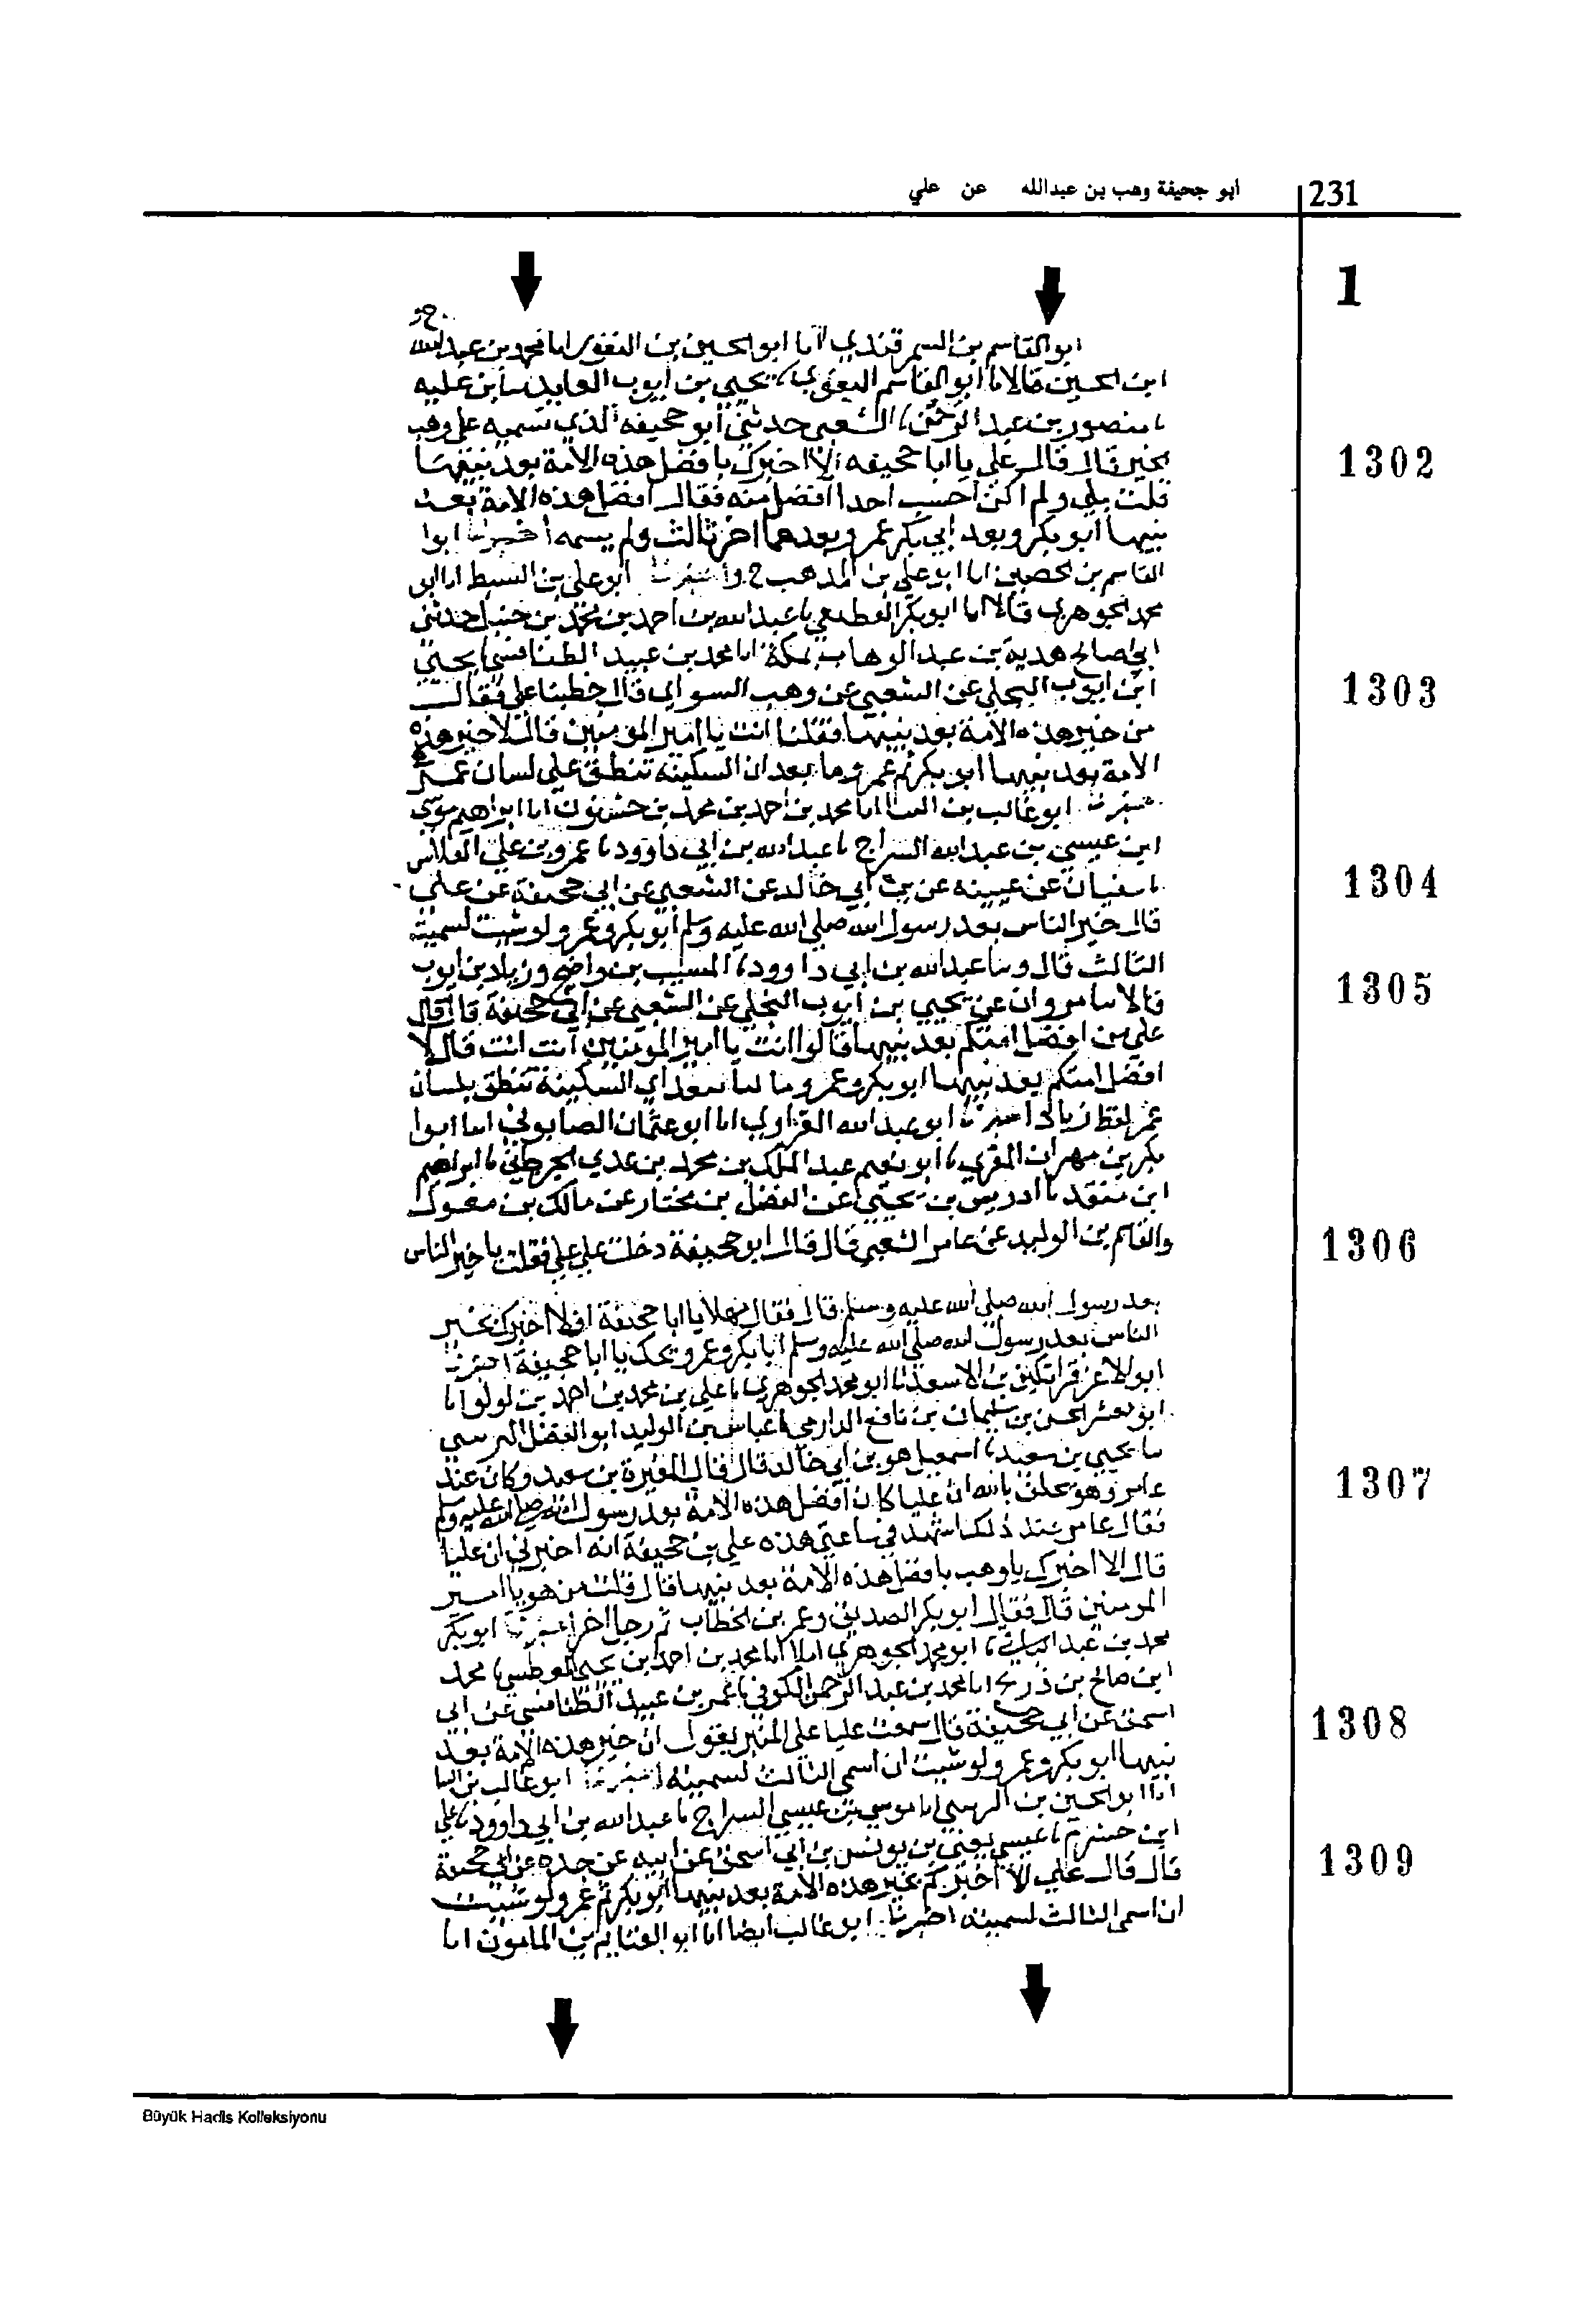 أبو جحيفة وهب بن عبدالله عن علي
231
1
ابو القاسم بن السمرقندي انا ابو الحسين بن النقور انا محمد بن عبدالله
ابن الحسين قالا نا ابو القاسم البغوي نا يحيى بن ايوب العابد نا ابن علية
نا منصور بن عبد الرحمن نا الشعبي حدثني أبو جحيفة الذي تسميه علي وهب
الخير قال قال علي يا ابا جحيفه الا اخبرك بافضل هذه الامة بعد نبيها
1302
قلت بلى ولم اكن احسب احدا افضل منه فقال افضل هذه الامة بعد
نبيها ابو بكر وبعد ابي بكر عمر وبعدهما اخر ثالث ولم يسمه اخبرنا ابوا
القاسم بن الحصين انا ابو علي بن المذهب ح واخبرنا ابو علي بن السبط انا ابو
محمد الجوهري قالا انا ابو بكر القطيعي نا عبدالله بن احمد بن محمد بن حنبل حدثني
ابو صالح هدية بن عبد الوهاب بمكة انا محمد بن عبيد الطنافسي نا يحيى
ابن ايوب البجلي عن الشعبي عن وهب السوائي قال خطبنا علي فقال
1303
من خير هذه الامة بعد نبيها فقلنا انت يا امير المؤمنين قال لا خير هذه
الامة بعد نبيها ابو بكر ثم عمر وما بعد ان السكينة تنطق على لسان عمر
اخبرنا ابو غالب بن البنا انا محمد بن احمد بن محمد بن حسنون انا ابراهيم موسى
ابن عيسى بن عبد الله السراج نا عبد الله بن ابي داوود نا عمرو بن علي الفلاس
نا سفيان عن عيينه عن بن أبي خالد عن الشعبي عن ابي جحيفة عن علي
1304
قال خير الناس بعد رسول الله صلى الله عليه وسلم أبو بكر وعمر ولو شيت لسميت
الثالث قال ونا عبدالله بن ابي داوود نا المسيب بن واضح وزياد بن ايوب
قالا نا مروان عن يحيى بن ايوب البجلي عن الشعبي عن ابي جحيفة قال قال
1305
علي من افضل امتكم بعد نبيها قالوا انت يا امير المومنين انت انت قال لا
افضل امتكم بعد نبيها ابو بكر وعمر وما كنا نبعد ان السكينة تنطق بلسان
عمر لفظ زياد اخبرنا ابو عبد الله الفراوي انا ابو عثمان الصابوني انا ابوا
بكر بن مهران المقري نا أبو نعيم عبد الملك بن محمد بن عدي الجرجاني نا ابراهيم
ابن منقد نا ادريس بن يحيى عن الفضل بن مختار عن مالك بن مغول
والقاسم بن الوليد عن عامر الشعبي قال قال ابو جحيفة دخلت على علي فقلت يا خير الناس
1306
بعد رسول الله صلى الله عليه وسلم قال فقال مهلا يا ابا جحيفة افلا اخبرك بخير
الناس بعد رسول الله صلى الله عليه وسلم أبا بكر وعمر ويحك يا ابا جحيفة اخبرنا
ابو الاعز قراتكين بن الاسعد نا ابو محمد الجوهري نا علي بن محمد بن احمد بن لولو انا
ابو معشر الحسن بن سليمان بن نافع الدارمي نا عباس بن الوليد ابو الفضل النرسي
نا يحيى بن سعيد نا اسمعيل هو بن ابي خالد قال قال المغيرة بن سعيد وكان عند
1307
عامر وهو يحلف بالله ان عليا كان افضل هذه الامة بعد رسول الله صلى الله عليه وسلم
فقال عامر عند ذلك اشهد في ساعتي هذه على بن جحيفة انه اخبرني ان عليا
قال الا اخبرك يا وهب بافضل هذه الامة بعد نبيها قال قلت من هو يا امير
المومنين قال فقال ابو بكر الصديق وعمر بن الخطاب ثم رجل اخر اخبرنا ابو بكر
محمد بن عبد الباقي نا ابو محمد الجوهري املا انا محمد بن احمد بن يحيى العطشي نا محمد
ابن صالح بن ذريح انا محمد بن عبد الرحمن الكوفي نا عمر بن عبيد الطنافسي عن ابي
اسحق عن ابي جحيفة قال سمعت عليا على المنبر يقول ان خير هذه الامة بعد
1308
نبيها ابو بكر وعمر ولو شيت ان اسمي الثالث لسميته اخبرنا ابو غالب بن البنا
انا ابو الحسين بن النرسي انا موسى بن عيسى السراج نا عبد الله بن ابي داوود نا علي
ابن خشرم نا عيسى يعني بن يونس بن ابي اسحق عن ابيه عن جده عن ابي جحيفة
1309
قال قال علي الا أخبركم بخير هذه الامة بعد نبيها أبو بكر ثم عمر ولو شيت
ان اسمي الثالث لسميته اخبرنا ابو غالب ايضا انا ابو الغنايم بن المامون انا
Büyük Hadis Kolleksiyonu